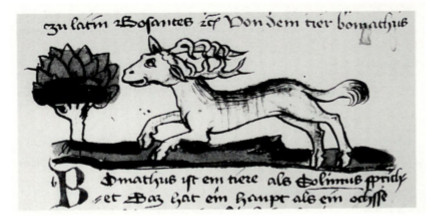 zu latin Bosantes etc Von dem tier bomachus
Bomathus ist ein tiere als Solinus sprich-
et Daz hat ein haupt als ein ochsse